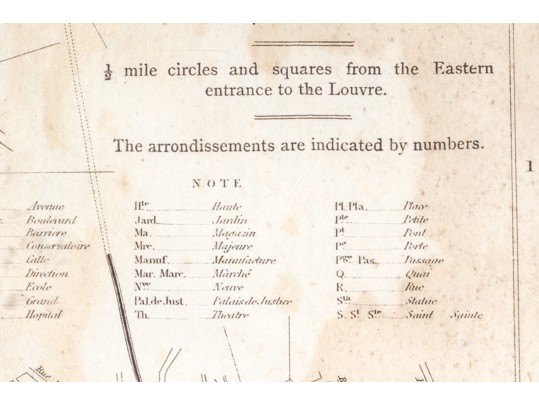 ½ mile circles and squares from the Eastern
entrance to the Louvre.
The arrondissements are indicated by numbers.
NOTE
Avenue
Boulevard
Barriere
Conservatoire
Calle
Direction
Ecole
Grand
Hopital
Hte Haute
Jard. Jardin
Ma. Magazin
Mre. Majeure
Manuf. Manufacture
Mar. Marc. Marché
Nve Neuve
Pal. de Just. Palais de Justice
Th. Theatre
Pl. Pla. Place
Pte Petite
Pt Pont
Pe Porte
Pge Pas. Passage
Q. Quai
R. Rue
Sta Statue
S. St Ste Saint Sainte
1
Rue